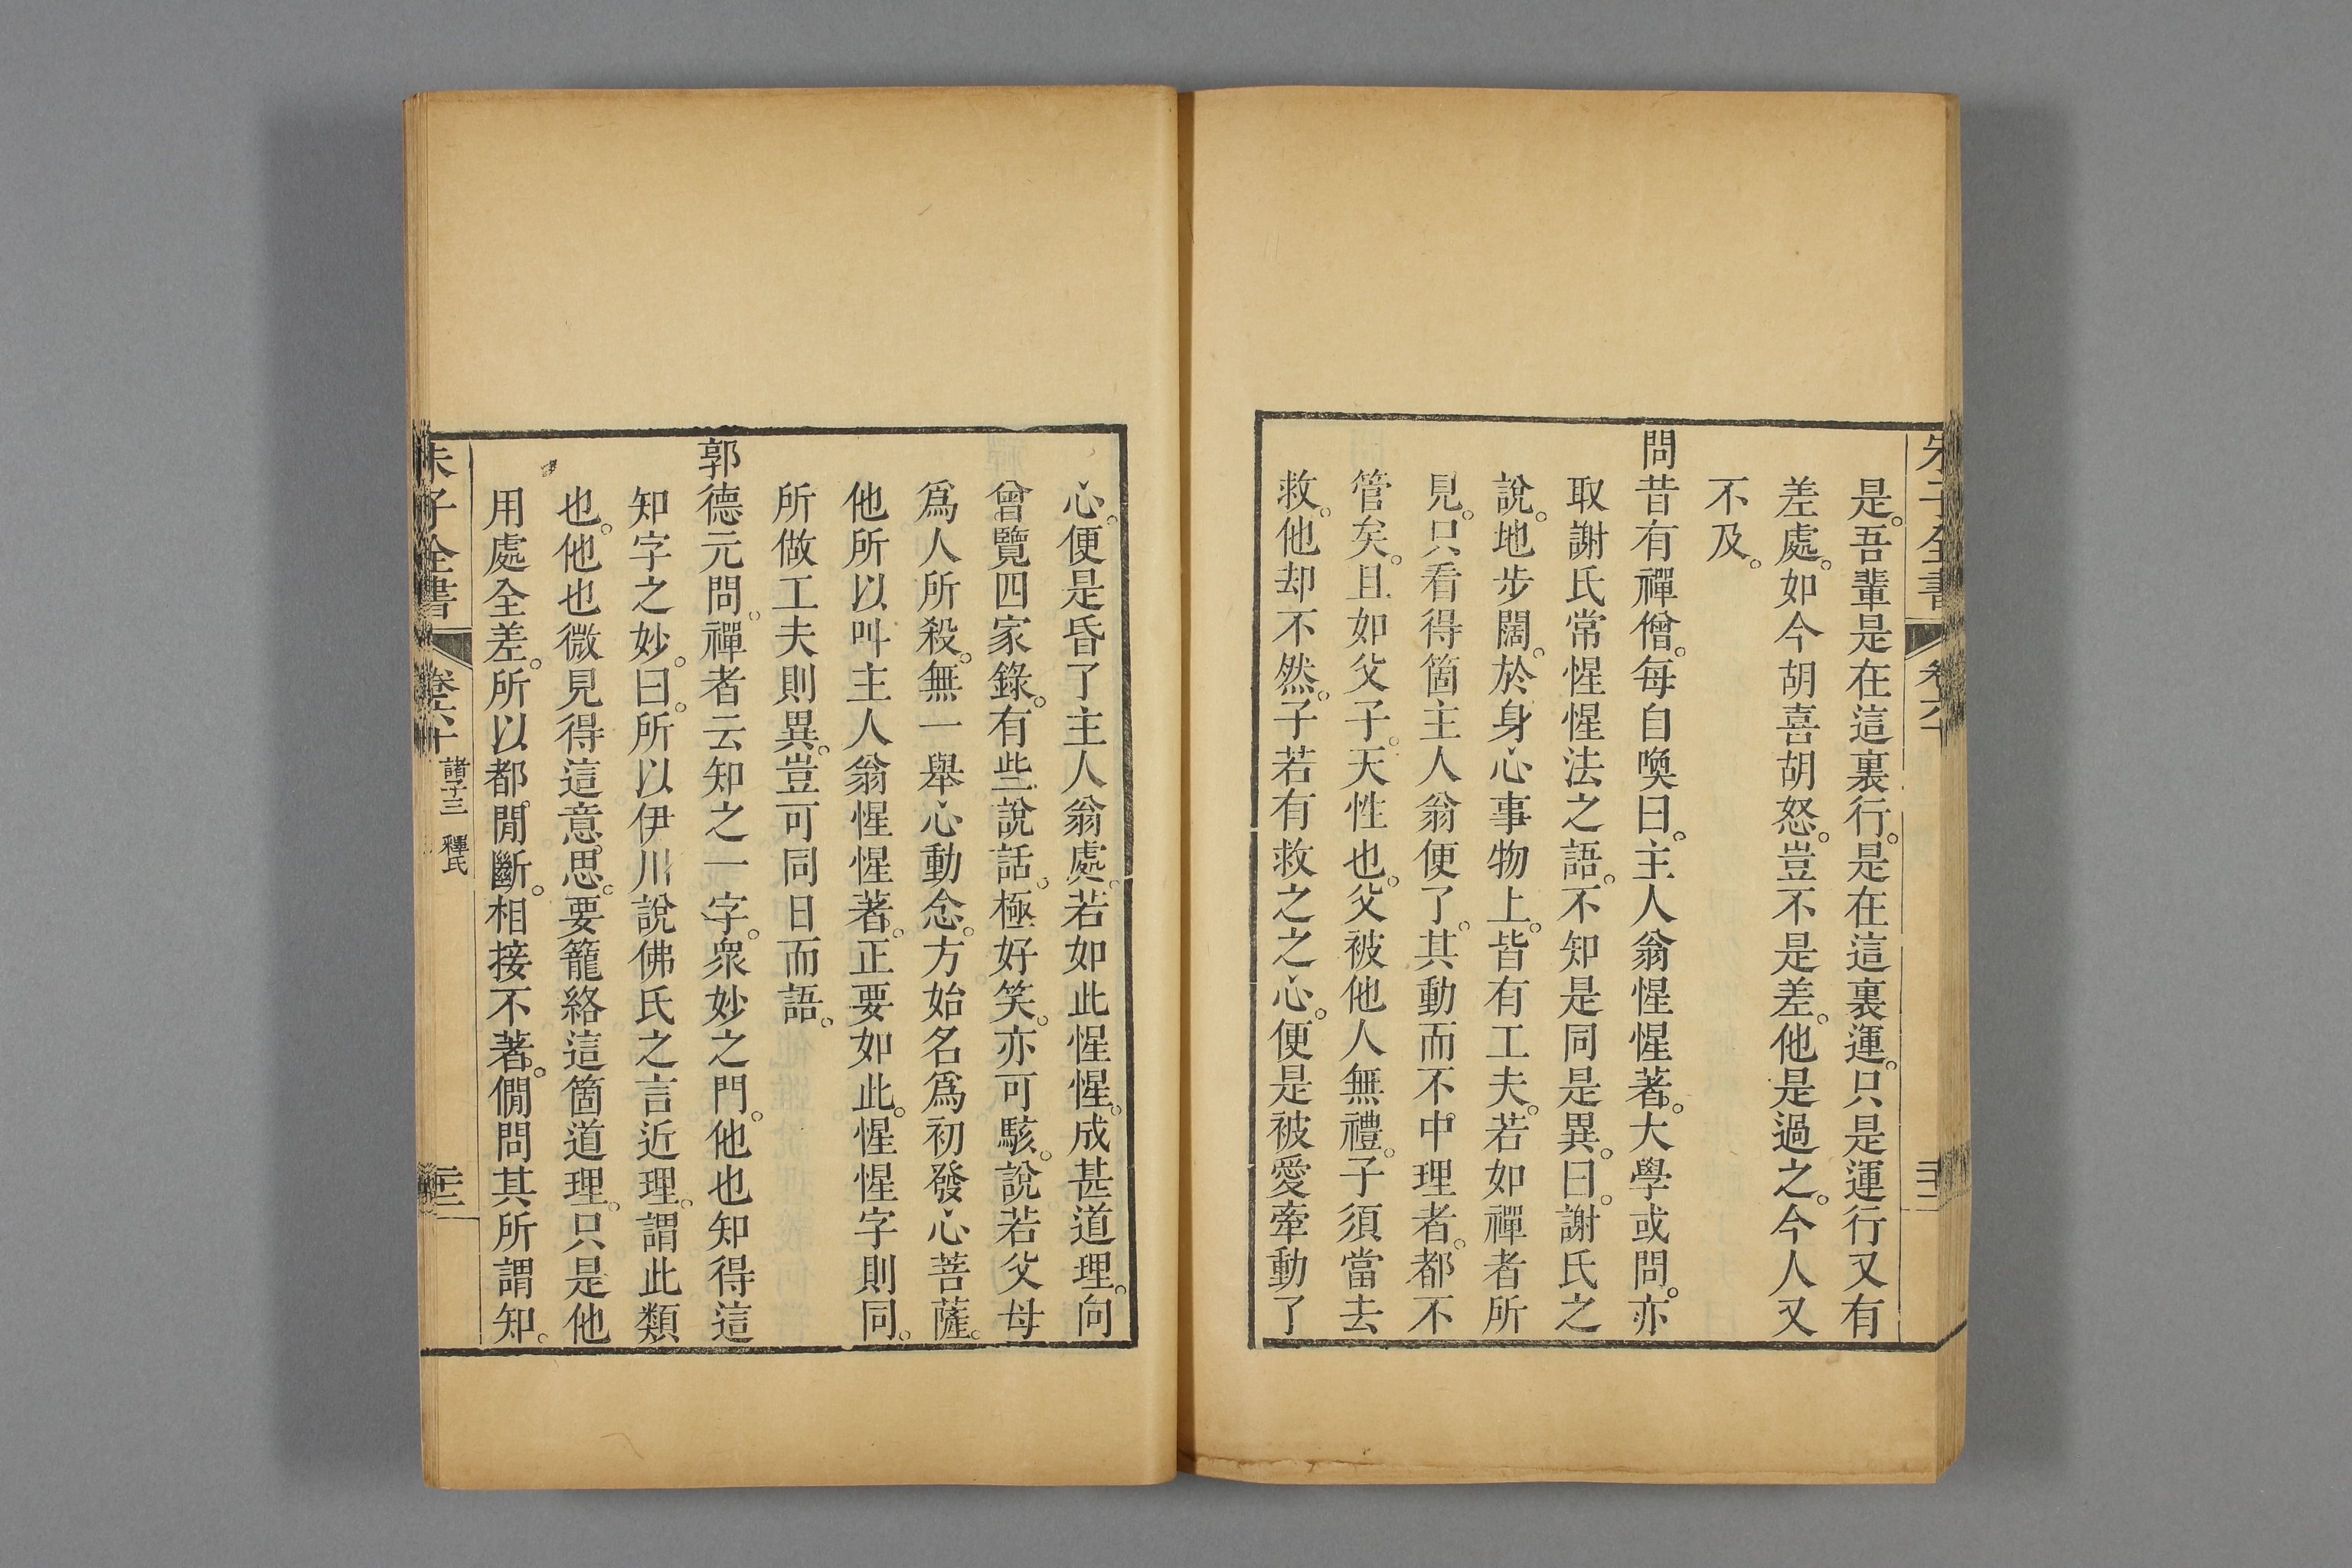 朱子全書 卷六十 二十二
是。吾輩是在這裏行。是在這裏運。只是運行又有
差處。如今胡喜胡怒。豈不是差。他是過之。今人又
不及。
問昔有禪僧。每自喚曰。主人翁惺惺著。大學或問。亦
取謝氏常惺惺法之語。不知是同是異。曰。謝氏之
說。地步闊。於身心事物上。皆有工夫。若如禪者所
見。只看得箇主人翁便了。其動而不中理者。都不
管矣。且如父子。天性也。父被他人無禮。子須當去
救。他却不然。子若有救之之心。便是被愛牽動了
心。便是昏了主人翁處。若如此惺惺。成甚道理。向
曾覽四家錄。有些說話。極好笑。亦可駭。說若父母
爲人所殺。無一舉心動念。方始名爲初發心菩薩。
他所以叫主人翁惺惺著。正要如此。惺惺字則同。
所做工夫則異。豈可同日而語。
郭德元問。禪者云知之一字。衆妙之門。他也知得這
知字之妙。曰。所以伊川說佛氏之言近理。謂此類
也。他也微見得這意思。要籠絡這箇道理。只是他
用處全差。所以都閒斷。相接不著。僩問其所謂知。
朱子全書 卷六十 諸子三 釋氏 二十三